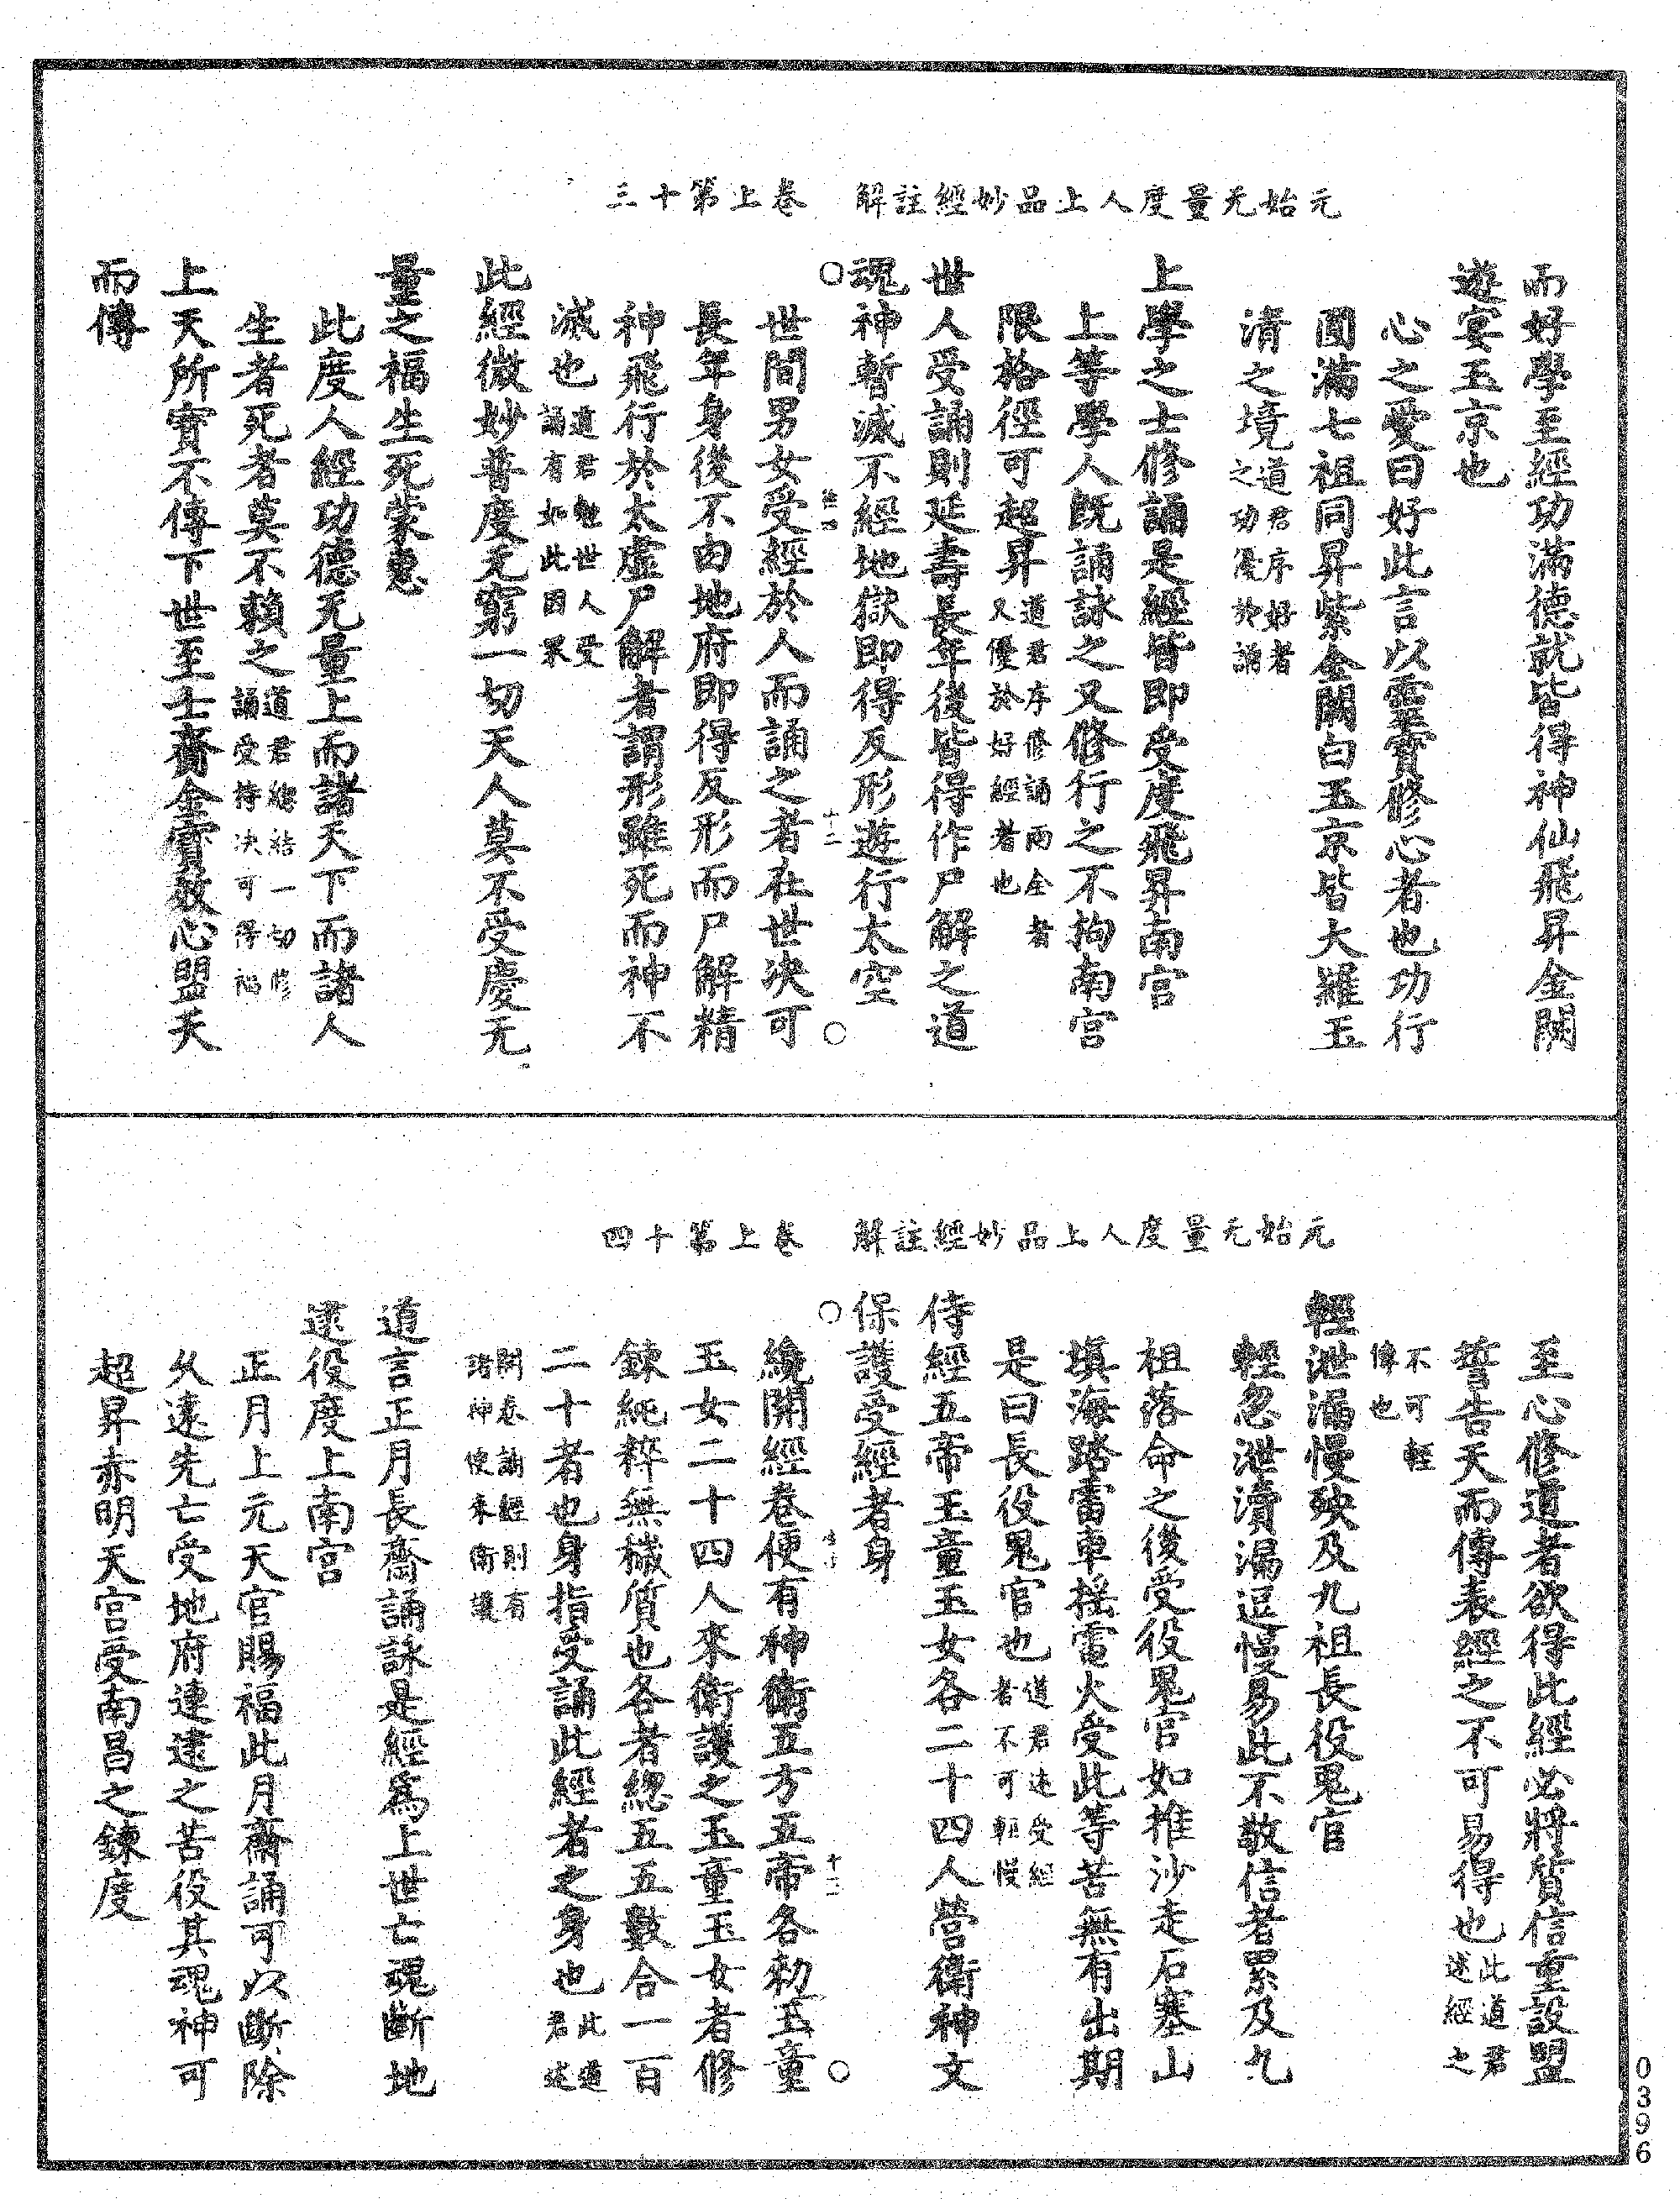 元始无量度人上品妙經註解　卷上第十三
而好學至經功滿德就皆得神仙飛昇金闕
遊宴玉京也
心之愛曰好此言以靈寶修心者也功行
圓滿七祖同昇紫金闕白玉京皆大羅玉
清之境道君序好者之功優於誦
上學之士修誦是經皆即受度飛昇南宮
上等學人旣誦詠之又修行之不拘南宮
限格徑可超昇道君序修誦兩全者又優於好經者也
世人受誦則延壽長年後皆得作尸解之道
魂神暫滅不經地獄即得反形遊行太空
世間男女受經於人而誦之者在世決可
長年身後不由地府即得反形而尸解精
神飛行於太虛尸解者謂形雖死而神不
滅也道君勉世人受誦有如此因果
此經微妙普度无窮一切天人莫不受慶无
量之福生死蒙惠
此度人經功德无量上而諸天下而諸人
生者死者莫不賴之道君總結一切修誦受持決可得福
上天所寶不傳下世至士齎金寶效心盟天
而傳
元始无量度人上品妙經註解　卷上第十四
至心修道者欲得此經必將質信重設盟
誓告天而傳表經之不可易得也此道君述經之
不可輕傳也
輕泄漏慢殃及九祖長役鬼官
輕忽泄瀆漏逗慢易此不敬信者累及九
祖落命之後受役鬼官如推沙走石塞山
填海踏雷車搖電火受此等苦無有出期
是曰長役鬼官也道君述受經者不可輕慢
侍經五帝玉童玉女各二十四人營衛神文
保護受經者身
纔開經卷便有神衛五方五帝各勑玉童
玉女二十四人來衛護之玉童玉女者修
鍊純粹無穢質也各者總五五數合一百
二十者也身指受誦此經者之身也此道君述
開卷誦經則有諸神使來衛護
道言正月長齋誦詠是經爲上世亡魂斷地
逮役度上南宮
正月上元天官賜福此月齋誦可以斷除
久遠先亡受地府連逮之苦役其魂神可
超昇赤明天宮受南昌之鍊度
0396